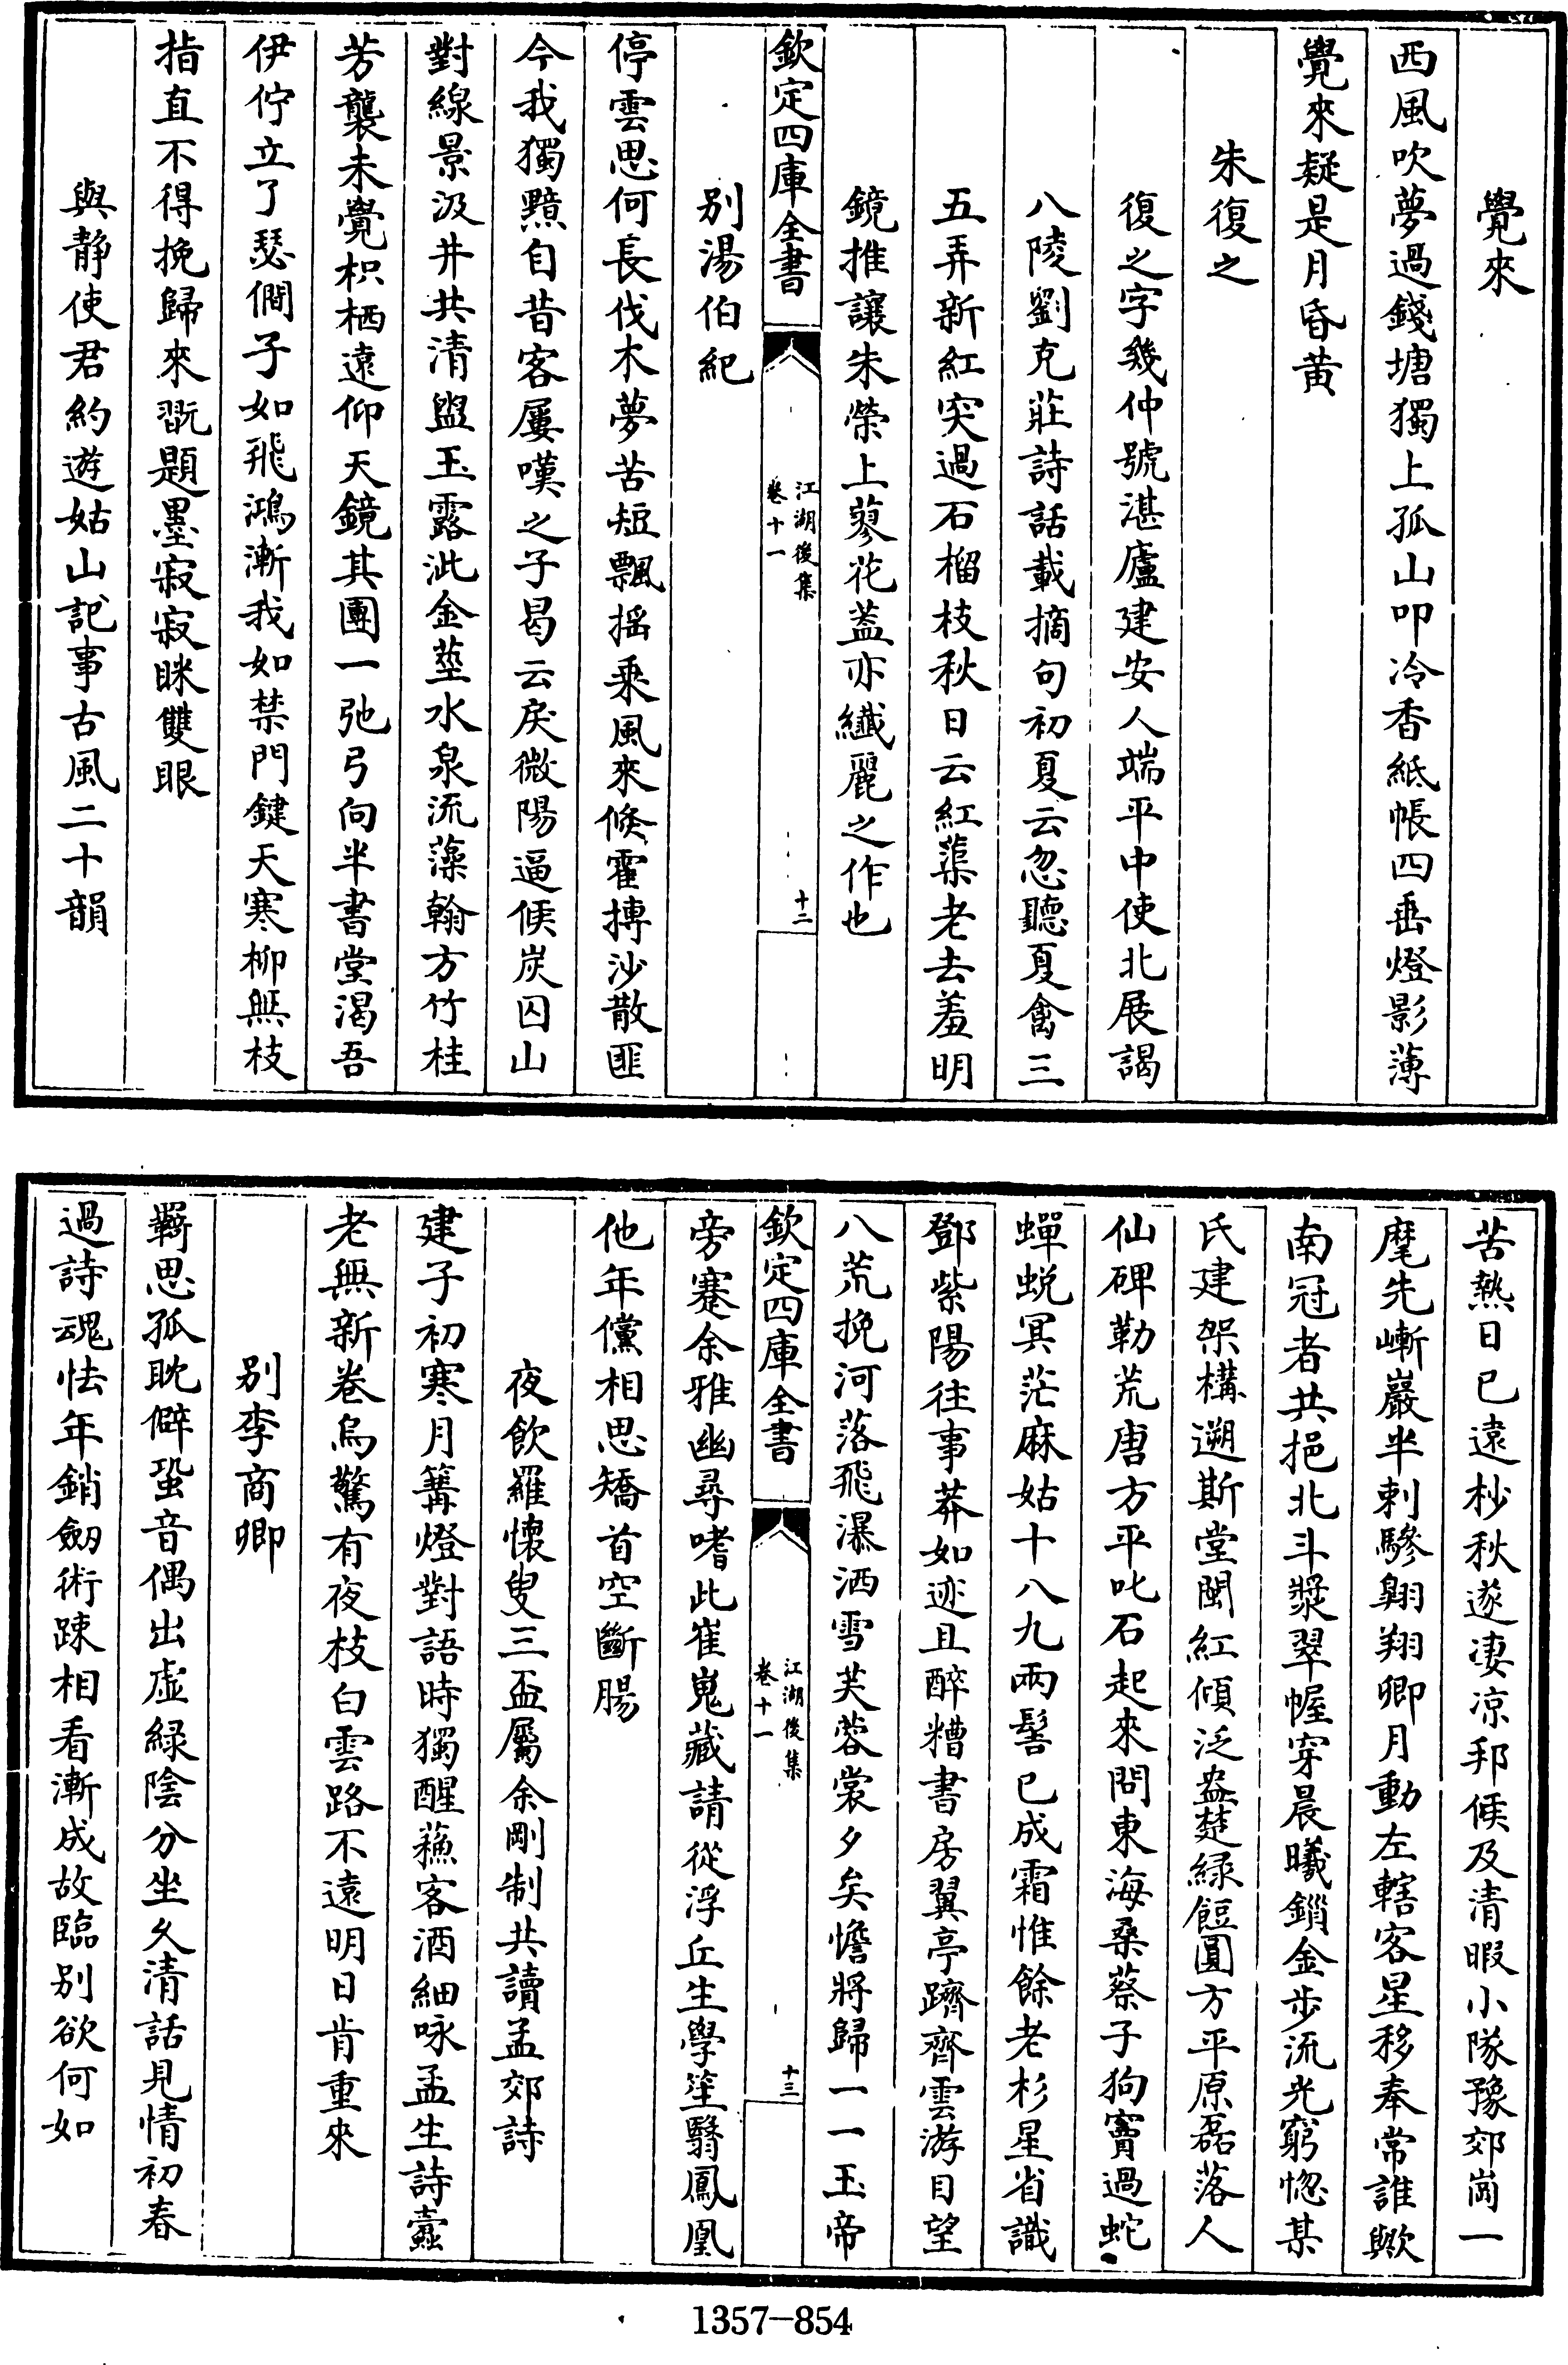 覺來
西風吹夢過錢塘獨上孤山叩冷香紙帳四垂燈影薄
覺來疑是月昏黃
朱復之
復之字幾仲號湛廬建安人端平中使北展謁
八陵劉克莊詩話載摘句初夏云忽聽夏禽三
五弄新紅突過石榴枝秋日云紅蕖老去羞明
鏡推讓朱榮上蓼花葢亦纖麗之作也
欽定四庫全書
江湖後集
卷十一
十二
別湯伯紀
停雲思何長伐木夢苦短飄搖乘風來倏霍摶沙散匪
今我獨黯自昔客屢嘆之子曷云戾微陽逼候炭囚山
對線景汲井共清盥玉露泚金莖水泉流藻翰方竹桂
芳襲未覺枳栖遠仰天鏡其團一弛弓向半書堂渴吾
伊佇立了瑟僩子如飛鴻漸我如禁門鍵天寒柳無枝
指直不得挽歸來翫題墨寂寂眯雙眼
與靜使君約遊姑山記事古風二十韻
苦熱日已遠杪秋遂淒凉邦候及清暇小隊豫郊崗一
麾先嶄巖半刺驂翺翔卿月動左轄客星移奉常誰歟
南冠者共挹北斗漿翠幄穿晨曦鎻金步流光窮惚某
氏建架構遡斯堂閩紅傾泛盎楚緑饾圓方平原磊落人
仙碑勒荒唐方平叱石起來問東海桑蔡子狗竇過蛇
蟬蜕冥茫麻姑十八九兩髻已成霜惟餘老杉星省識
鄧紫陽往事莽如迹且醉糟書房翼亭躋齊雲游目望
八荒挽河落飛瀑洒雪芙蓉裳夕矣憺將歸一一玉帝
欽定四庫全書
江湖後集
卷十一
十三
旁蹇余雅幽尋嗜此崔嵬藏請從浮丘生學笙翳鳳凰
他年儻相思矯首空斷腸
夜飲羅懷叟三盃屬余剛制共讀孟郊詩
建子初寒月篝燈對語時獨醒蘓客酒細咏孟生詩蠹
老無新卷烏驚有夜枝白雲路不遠明日肯重來
別李商卿
羇思孤躭僻蛩音偶出虛緑陰分坐乆清話見情初春
過詩魂怯年銷劒術踈相看漸成故臨別欲何如
1357-854